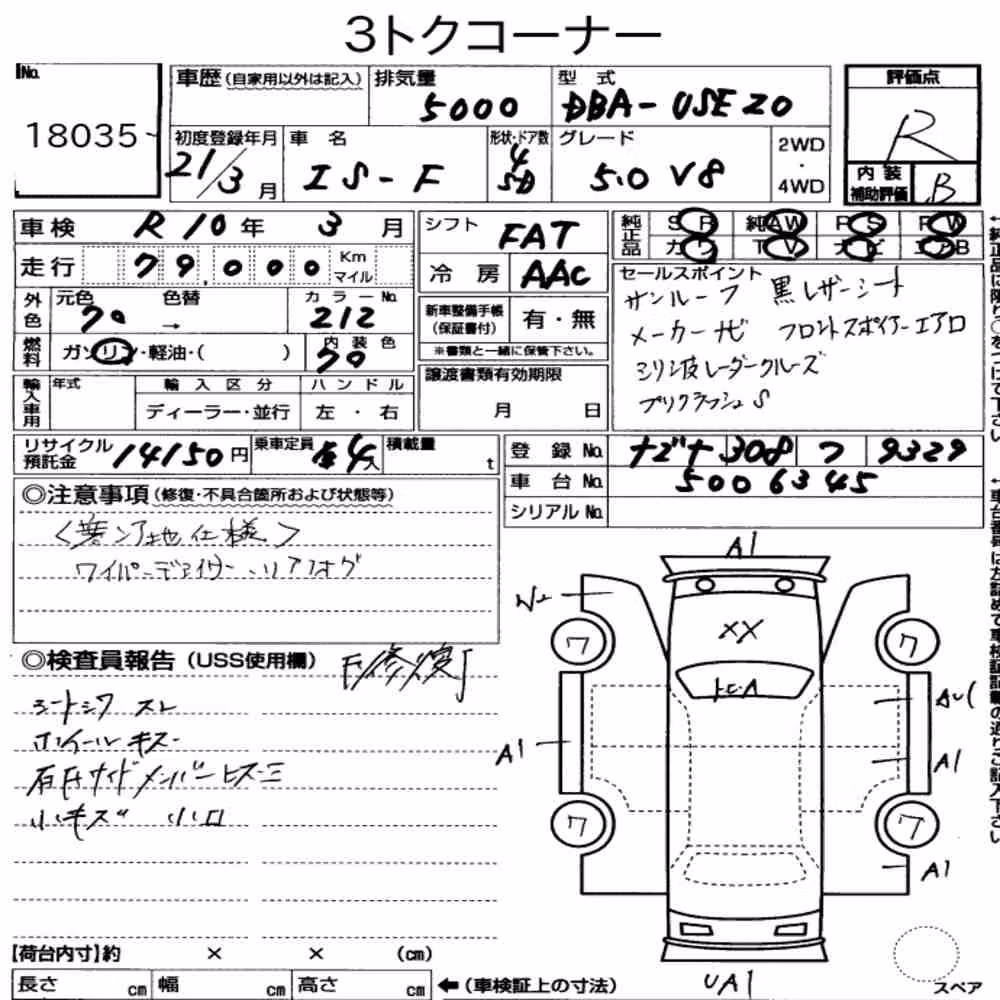 3トクコーナー
No.
18035
車歴(自家用以外は記入)
排気量
5000
型 式
DBA-USE20
評価点
R
内装補助評価
B
初度登録年月
21/3月
車 名
IS-F
形状・ドア数
4
SD
グレード
5.0 V8
2WD
・
4WD
車検 R10年 3月
走行 79,000 Km マイル
シフト
FAT
冷房
AAC
純正品
SR 純AW PS PW
カワ TV ナビ エアB
外色
元色 色替 カラーNo.
クロ → 212
燃料
ガソリン・軽油・( )
内装色
クロ
新車整備手帳(保証書付)
有・無
※書類と一緒に保管下さい。
セールスポイント
サンルーフ 黒レザーシート
メーカーナビ フロントスポイラーエアロ
ミリ波レーダークルーズ
プリクラッシュS
輸入車用
年式
輸入区分
ディーラー・並行
ハンドル
左・右
譲渡書類有効期限
月 日
リサイクル預託金 14150円
乗車定員 4人
積載量 t
登録No. ナゴヤ 308 フ 9329
車台No. 5006345
シリアルNo.
◎注意事項(修復・不具合箇所および状態等)
<寒冷地仕様>
ワイパーデアイサー・リアフォグ
◎検査員報告(USS使用欄)
「修復」
シートシワ スレ
ホイールキズ
右Fサイドメンバーヒズミ
小キズ 小凹
A1
W2
XX
トビA
ワ
ワ
ワ
ワ
A1
AU1
A1
A1
UA1
スペア
【荷台内寸】約 × × (cm)
長さ cm 幅 cm 高さ cm
←(車検証上の寸法)
←純正品に限り○をつけて下さい
←車台番号は左詰めで車検証記載の通りご記入下さい